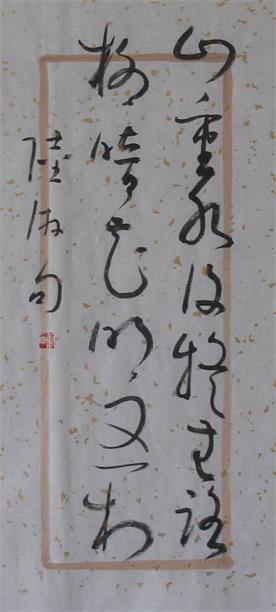 山重水复疑无路
柳暗花明又一村
陸游句